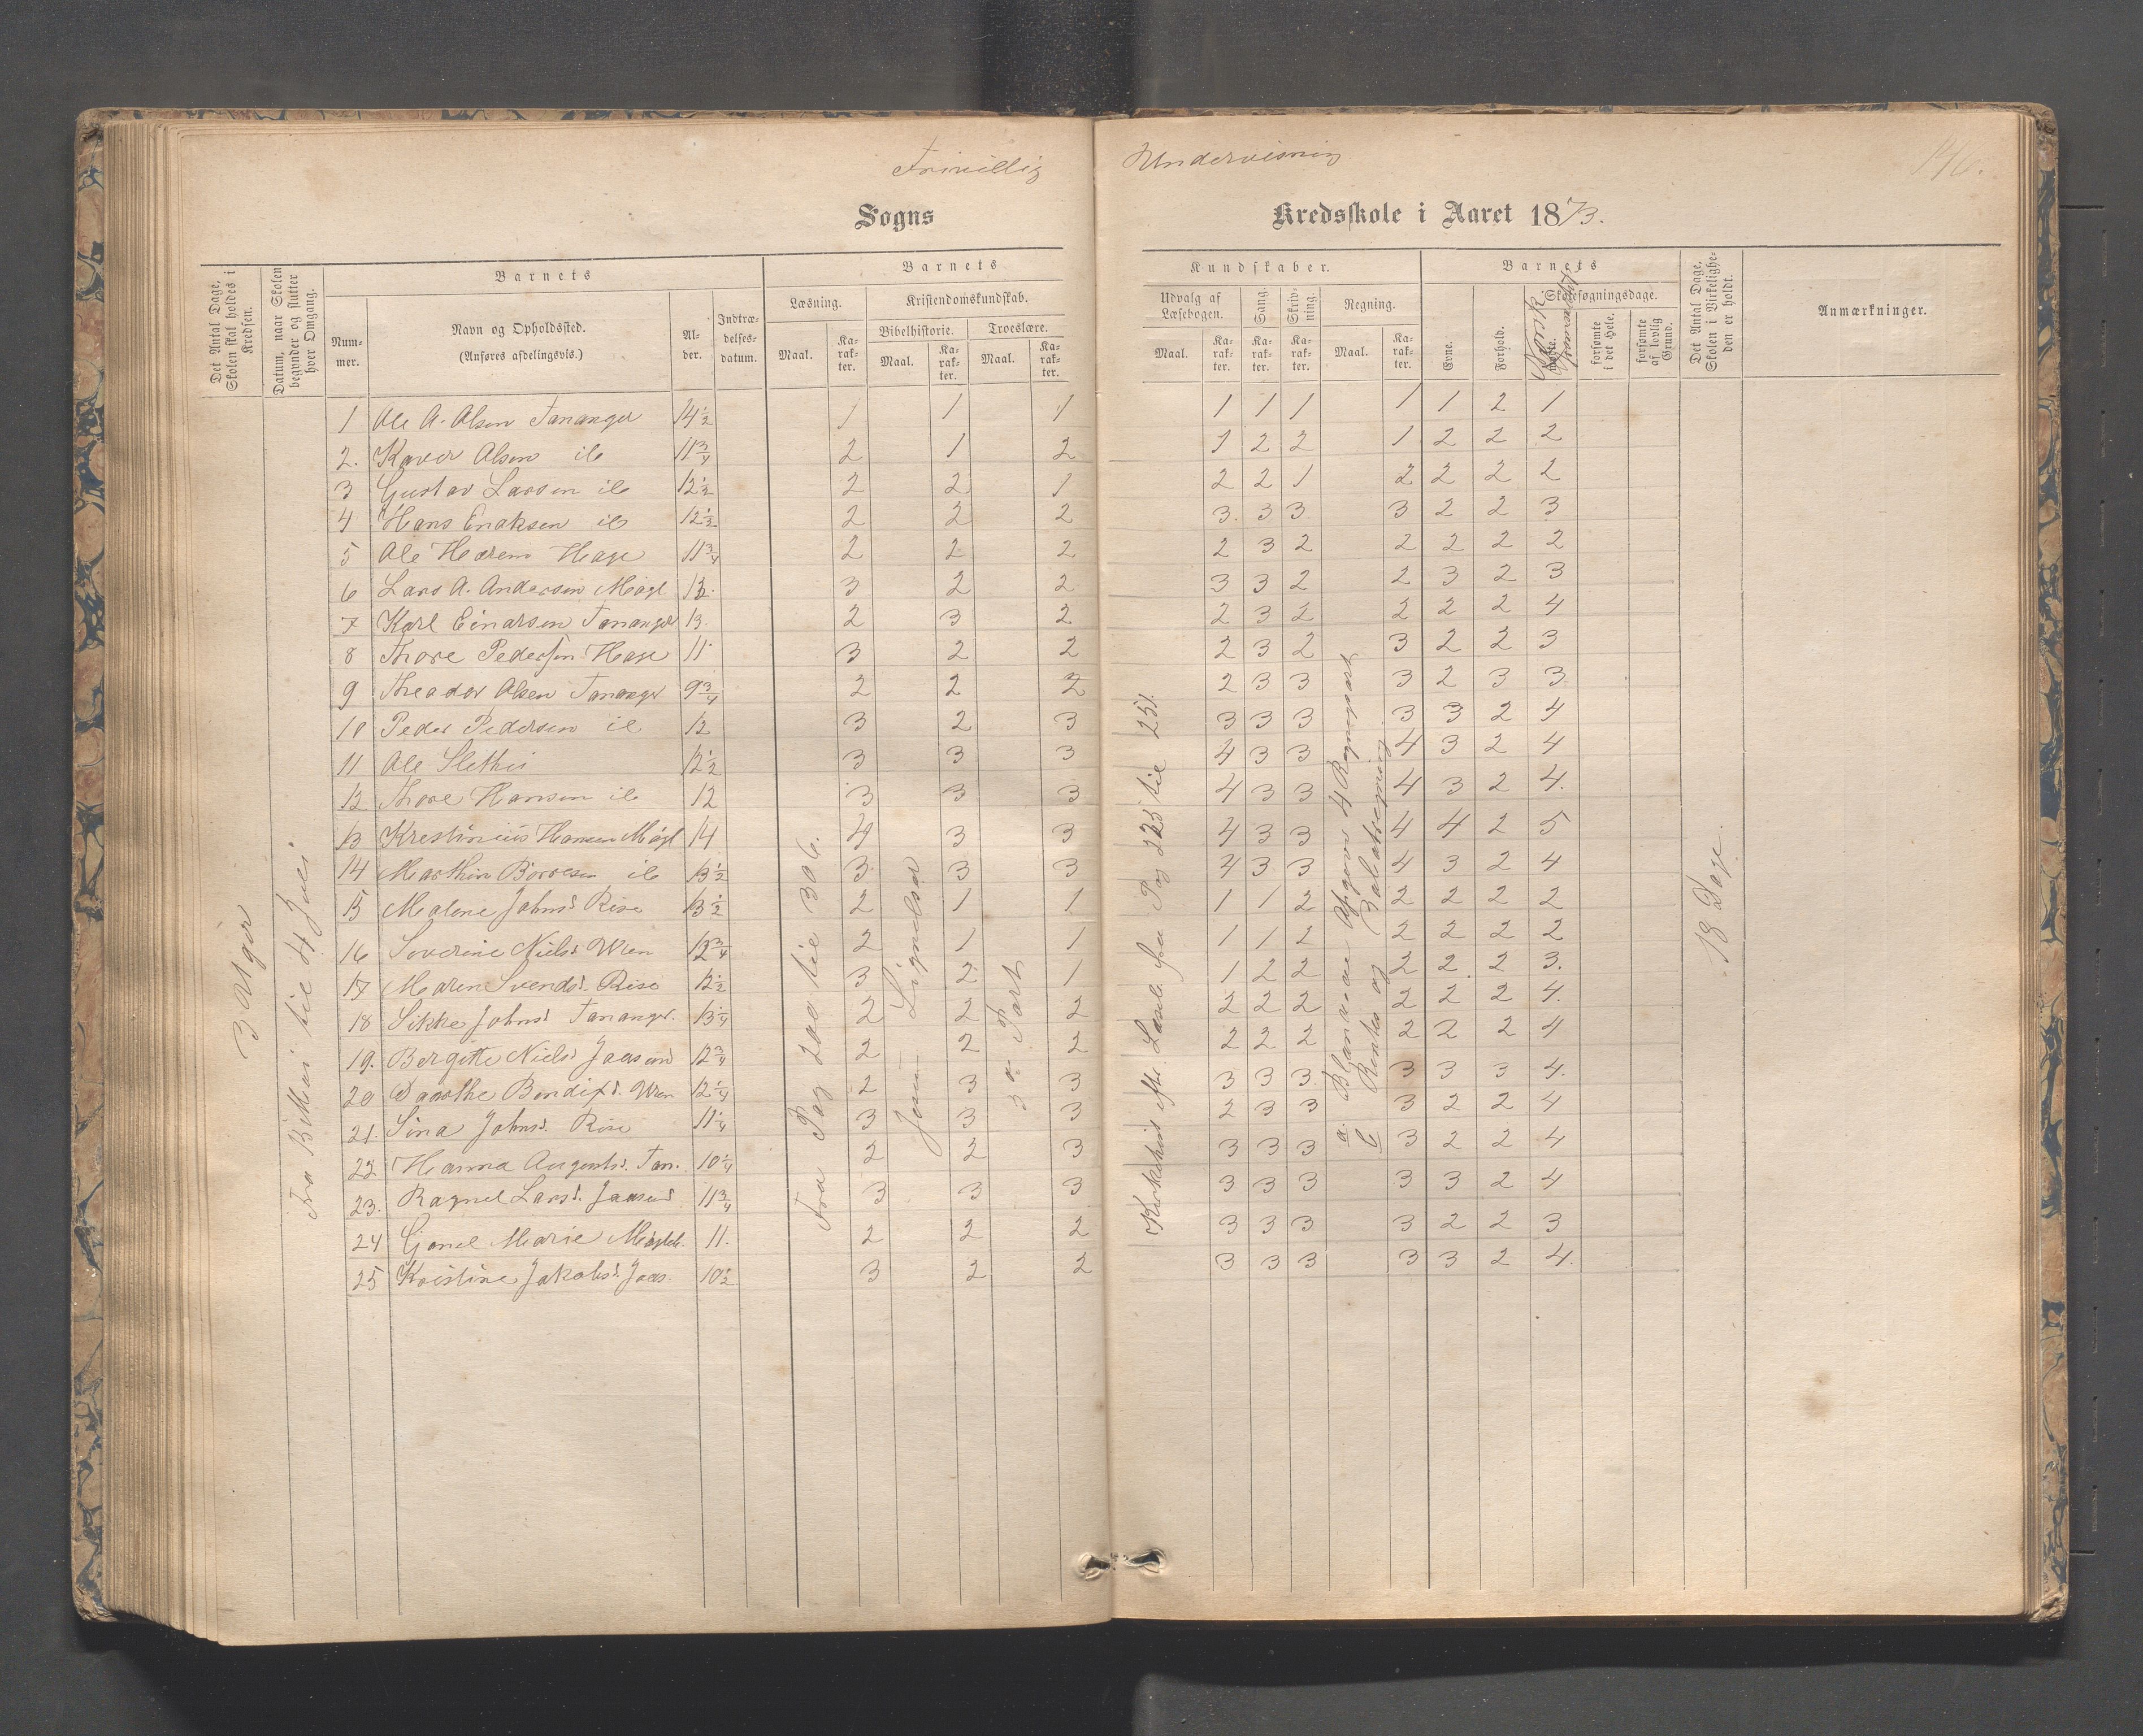 Frivillig Undervisning
146.
Sogns Kredsskole i Aaret 1873.
Det Antal Dage, Skolen skal holdes i Kredsen.
Datum, naar Skolen begynder og slutter hver Omgang.
Barnets
Nummer.
Navn og Opholdssted.
(Anføres afdelingsvis.)
Alder.
Indtrædelsesdatum.
Barnets
Læsning.
Maal.
Karakter.
Kristendomskundskab.
Bibelhistorie.
Maal.
Karakter.
Troeslære.
Maal.
Karakter.
Kundskaber.
Udvalg af Læsebogen.
Maal.
Karakter.
Sang.
Karakter.
Skrivning.
Karakter.
Regning.
Maal.
Karakter.
Barnets
Evne.
Forhold.
Skolesøgningsdage.
Norsk
forsømte i det Hele.
forsømte af lovlig Grund.
Det Antal Dage, Skolen i Virkeligheden er holdt.
Anmærkninger.
1 Ole A. Olsen Tananger 14½ 1 1 1 1 1 1 1 1 2 1
2. Kaver Olsen ib 11¾ 2 1 2 1 2 2 1 2 2 2
3 Gustav Larsen ib 12½ 2 2 1 2 2 1 2 2 2 2
4 Hans Enaksen ib 12½ 2 2 2 3 3 3 3 2 2 3
5 Ole Hærem Hage 11¾ 2 2 2 2 3 2 2 2 2 2
6 Lars A. Andersen Mægl 13 3 2 2 3 3 2 2 3 2 3
7 Karl Einarsen Tananger 13. 2 3 2 2 3 2 2 2 2 4
8 Thore Pedersen Hage 11 3 2 2 2 3 2 3 2 2 3
9 Theador Olsen Tananger 9¾ 2 2 2 2 3 3 3 2 3 3
10 Peder Pedersen ib 12 3 2 3 3 3 3 3 3 2 4
11 Ole Slethei 12½ 3 3 3 4 3 3 4 3 2 4
12 Thore Hansen ib 12 3 3 3 4 3 3 4 3 2 4.
13 Krestinius Hansen Mægl 14 4 3 3 4 3 3 4 4 2 5
14 Marthin Børresen ib 13½ 3 3 3 4 3 3 4 3 2 4
15 Malene Johnsd. Risa 13½ 2 1 1 1 1 2 2 2 2 2
16 Soverine Nielsd. Wren 12¾ 2 1 1 1 1 2 2 2 2 2
17 Maren Svendsd. Risa 12½ 3 2 1 1 2 2 2 2 2 3.
18 Sikke Johnsd. Tananger. 13¼ 2 2 2 2 2 2 2 2 2 4.
19. Bergitte Nielsd. Jaasund 12¾ 2 2 2 2 2 2 2 2 2 4
20 Daarthe Bendixd. Wren 12¼ 2 3 3 3 3 3 3 3 3 4.
21. Sina Johnsd. Risa 11¼ 3 3 3 2 3 3 3 2 2 4
22 Hanna Augustsd. Tan. 10¼ 2 2 3 3 3 3 3 2 2 4
23. Ragnel Larsd. Jaasund 11¾ 3 3 3 3 3 3 3 3 2 4
24 Gonel Marie Mægleh. 11. 2 2 2 3 3 3 3 2 2 3
25 Kristine Jakobsd. Jaas. 10½ 3 2 2 3 3 3 3 3 2 4.
3 Uger
Fra til 4 Juli
Fra Pag 200 til 306.
Jesu Lignelser
3die Part
Kirkehist. efter Læseb. fra Pag 225 til 251.
a. Blandede Opgaver 4 Regnearter
b Rentes og
18 Dage.